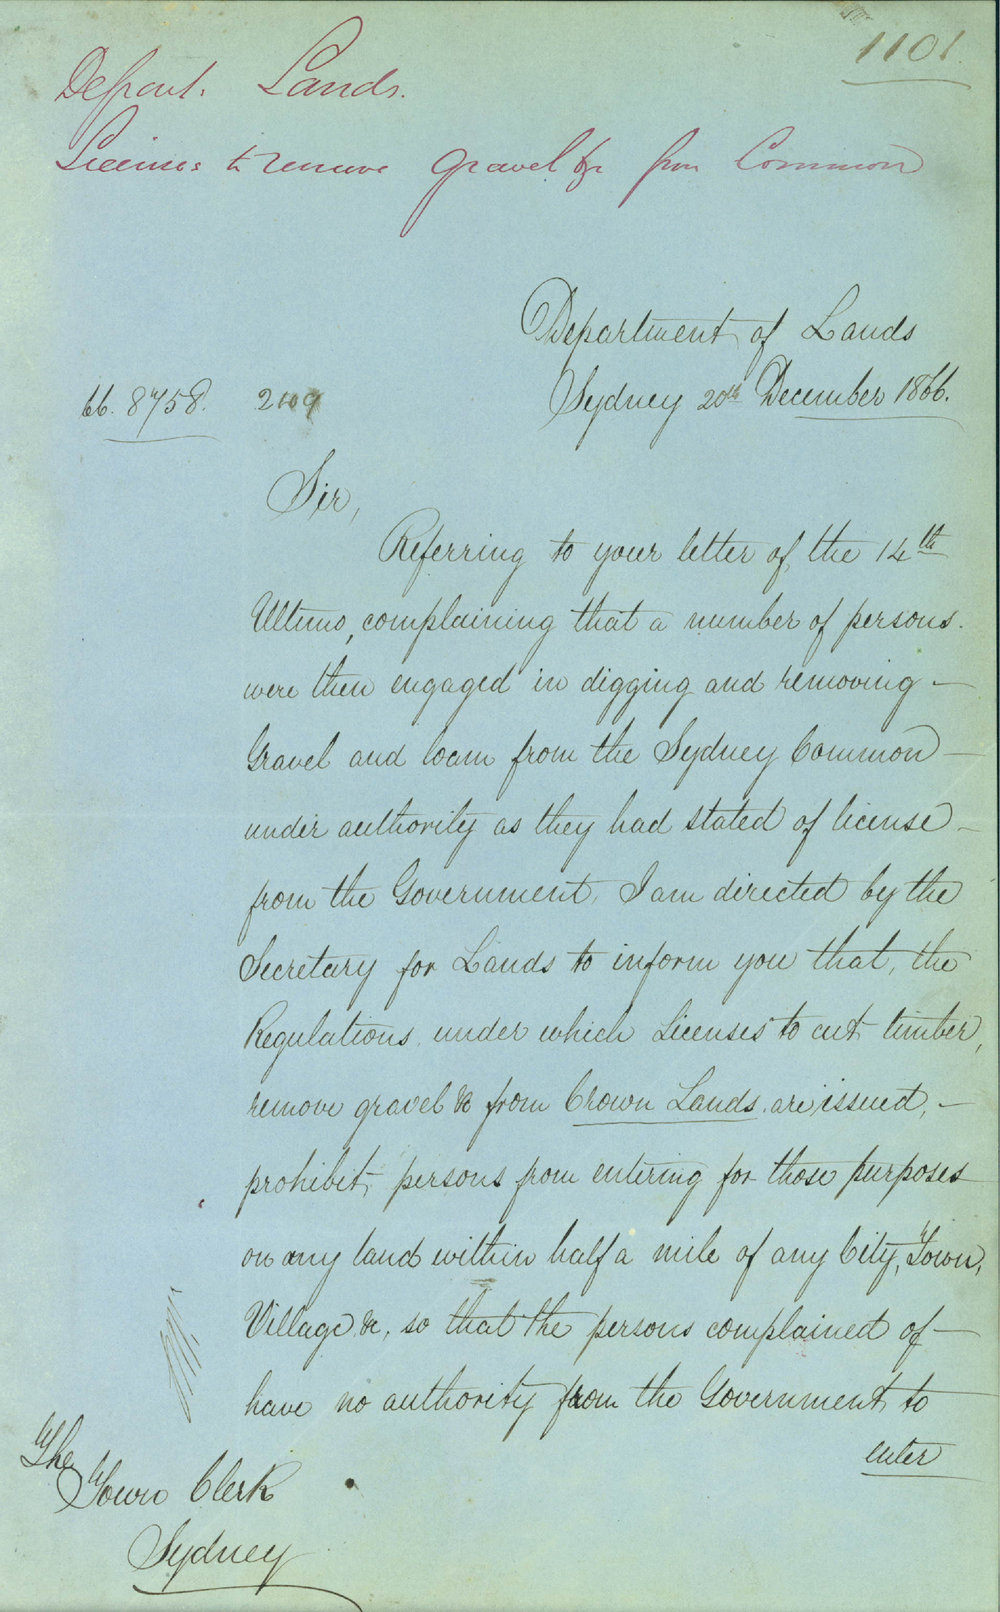 1101.
Depart. Lands.
Licenses to remove gravel &c from Common
Department of Lands
Sydney 20th December 1866.
66. 8758. 2109
Sir,
Referring to your letter of the 14th
Ultimo, complaining that a number of persons
were then engaged in digging and removing —
Gravel and loam from the Sydney Common —
under authority as they had stated of license —
from the Government, I am directed by the
Secretary for Lands to inform you that, the
Regulations under which Licenses to cut timber,
remove gravel &c from Crown Lands are issued, —
prohibit persons from entering for those purposes
on any land within half a mile of any City, Town,
Village &c, so that the persons complained of —
have no authority from the Government to
enter
The
Town Clerk
Sydney